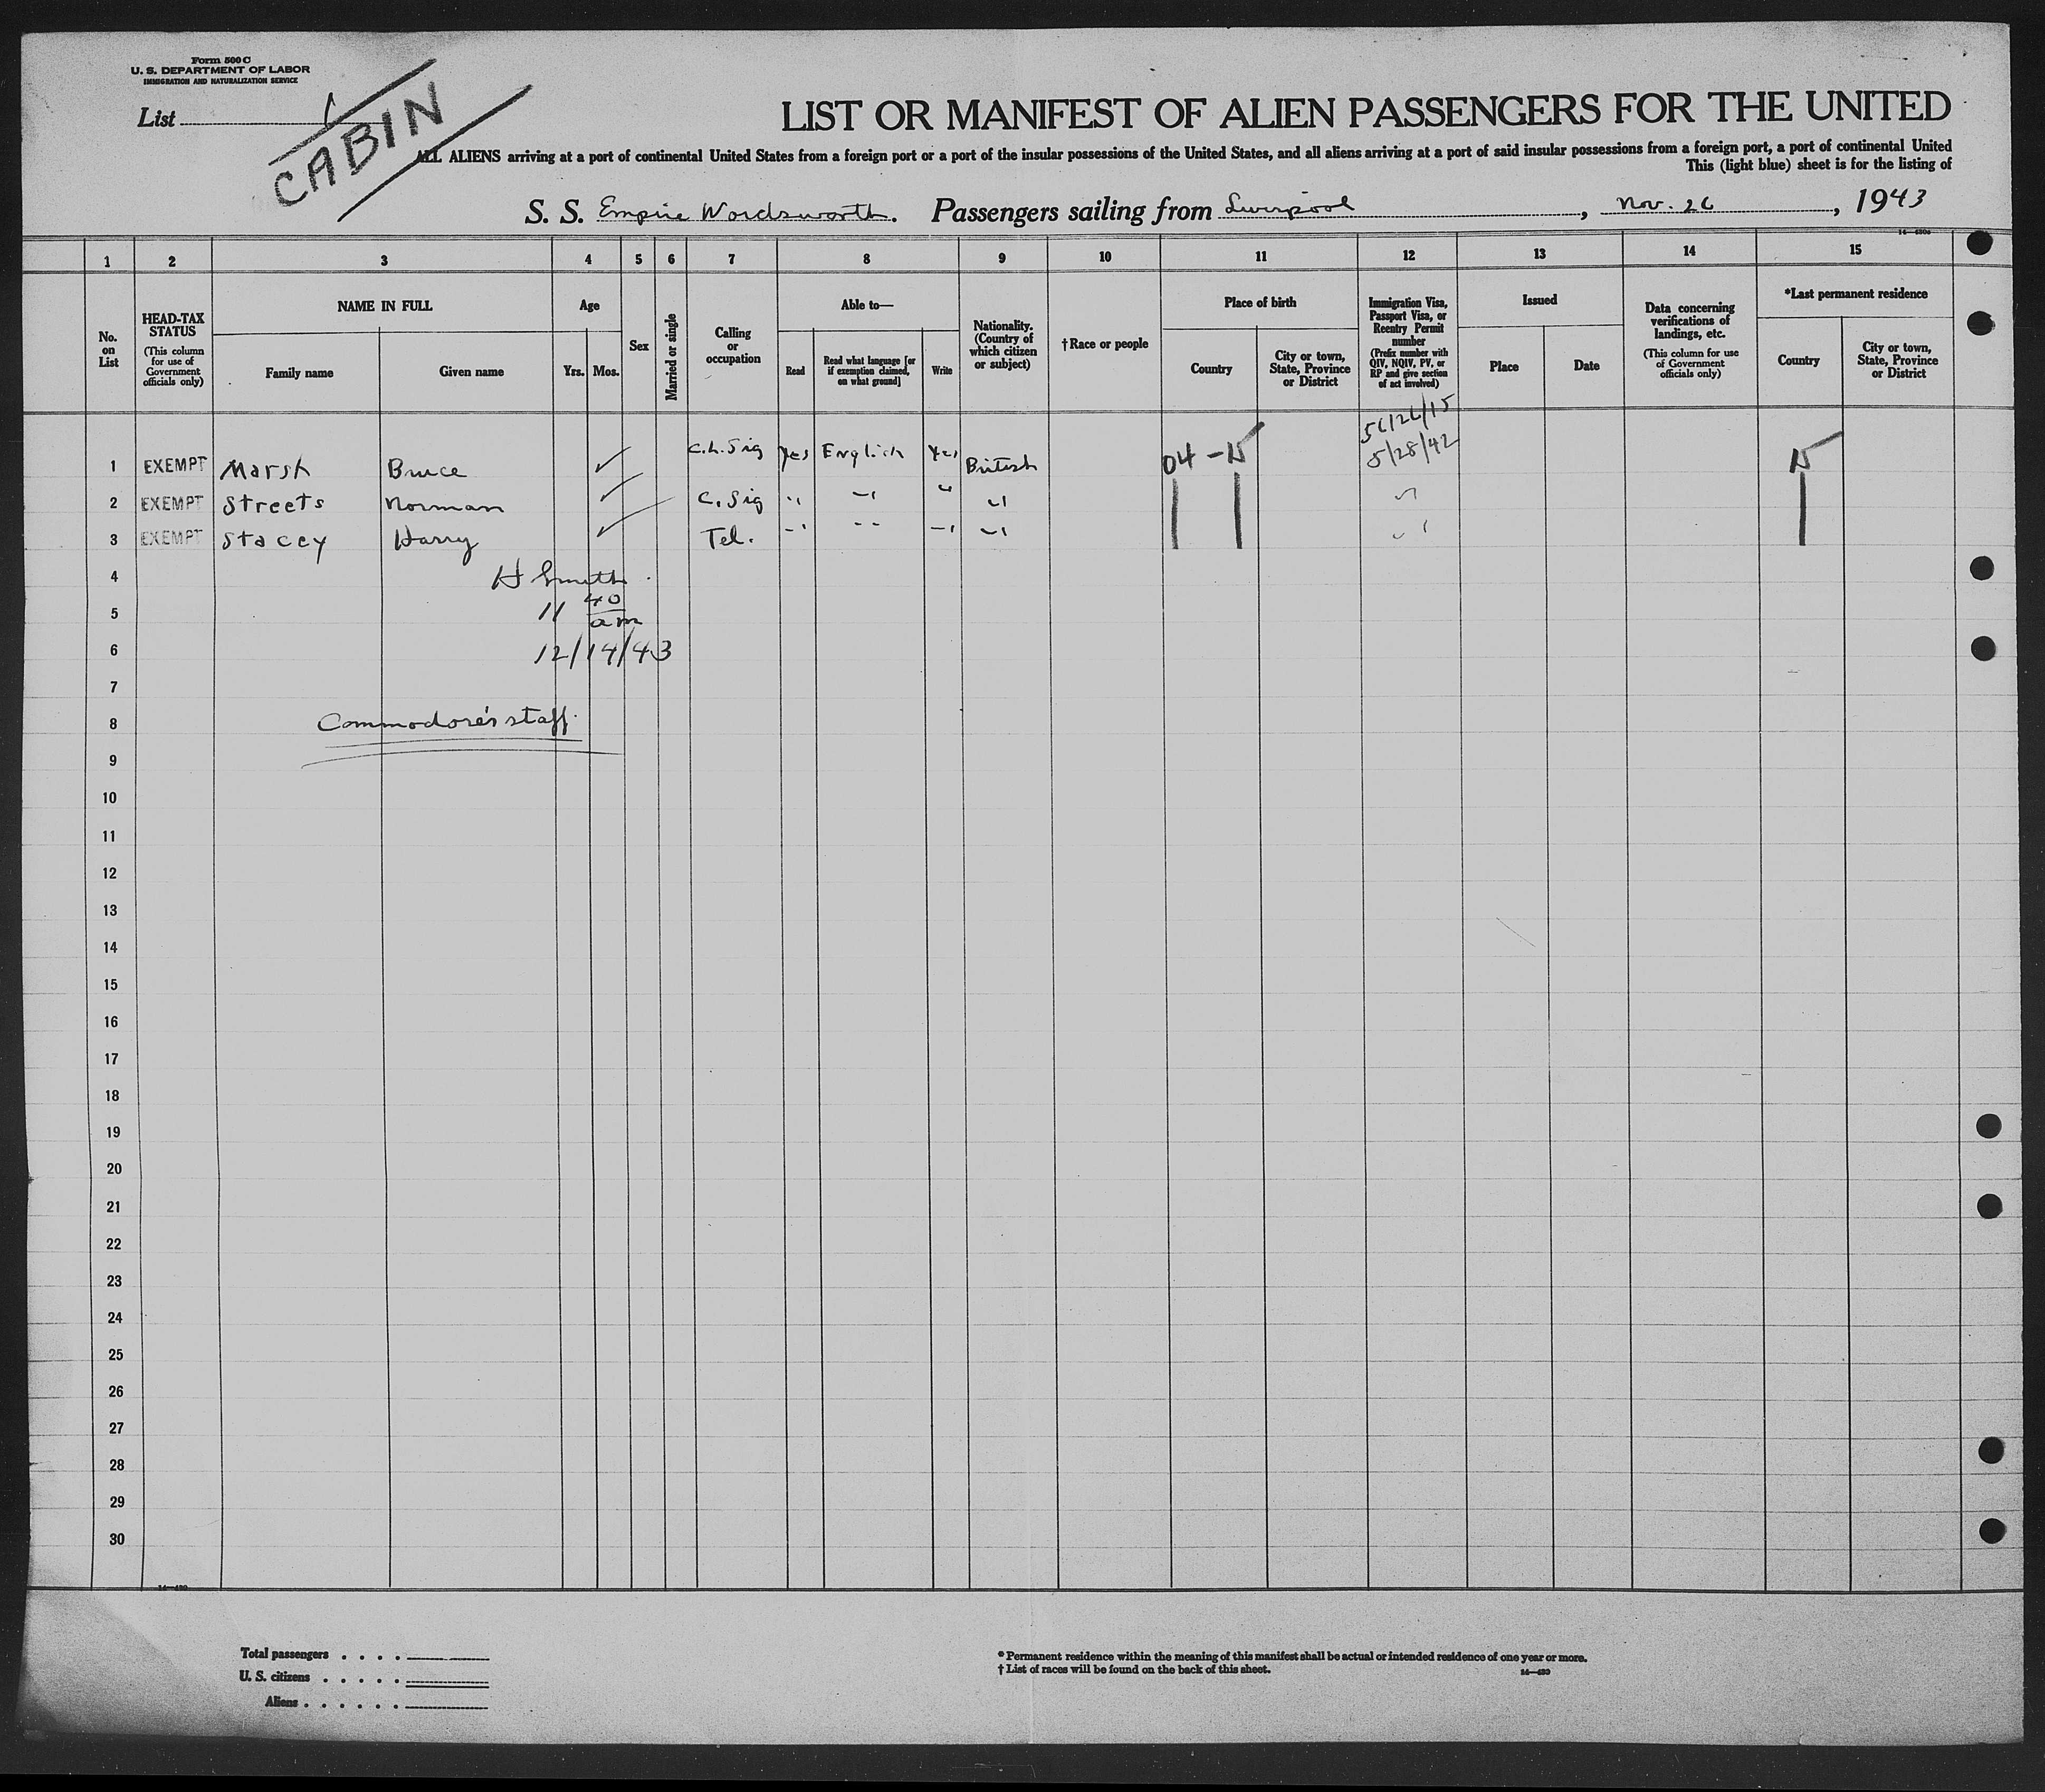 Form 500 C
U. S. DEPARTMENT OF LABOR
IMMIGRATION AND NATURALIZATION SERVICE
List
CABIN
LIST OR MANIFEST OF ALIEN PASSENGERS FOR THE UNITED
ALL ALIENS arriving at a port of continental United States from a foreign port or a port of the insular possessions of the United States, and all aliens arriving at a port of said insular possessions from a foreign port, a port of continental United
This (light blue) sheet is for the listing of
S. S. Empire Wordsworth. Passengers sailing from Liverpool, Nov. 26, 1943
1 2 3 4 5 6 7 8 9 10 11 12 13 14 15
No. on List
HEAD-TAX STATUS
(This column for use of Government officials only)
NAME IN FULL
Family name
Given name
Age
Yrs.
Mos.
Sex
Married or single
Calling or occupation
Able to—
Read
Read what language [or if exemption claimed, on what ground]
Write
Nationality. (Country of which citizen or subject)
†Race or people
Place of birth
Country
City or town, State, Province or District
Immigration Visa, Passport Visa, or Reentry Permit number
(Prefix number with QIV, NQIV, PV, or RP and give section of act involved)
Issued
Place
Date
Data concerning verifications of landings, etc.
(This column for use of Government officials only)
*Last permanent residence
Country
City or town, State, Province or District
5/28/42
1 EXEMPT Marsh Bruce C.L.Sig Yes English Yes British 04
2 EXEMPT Streets Norman C. Sig " " " "
3 EXEMPT Stacey Harry Tel. " " " "
4 H Smith.
5 11 40 am
6 12/14/43
7
8 Commodore's staff.
9
10
11
12
13
14
15
16
17
18
19
20
21
22
23
24
25
26
27
28
29
30
Total passengers
U. S. citizens
Aliens
* Permanent residence within the meaning of this manifest shall be actual or intended residence of one year or more.
† List of races will be found on the back of this sheet.